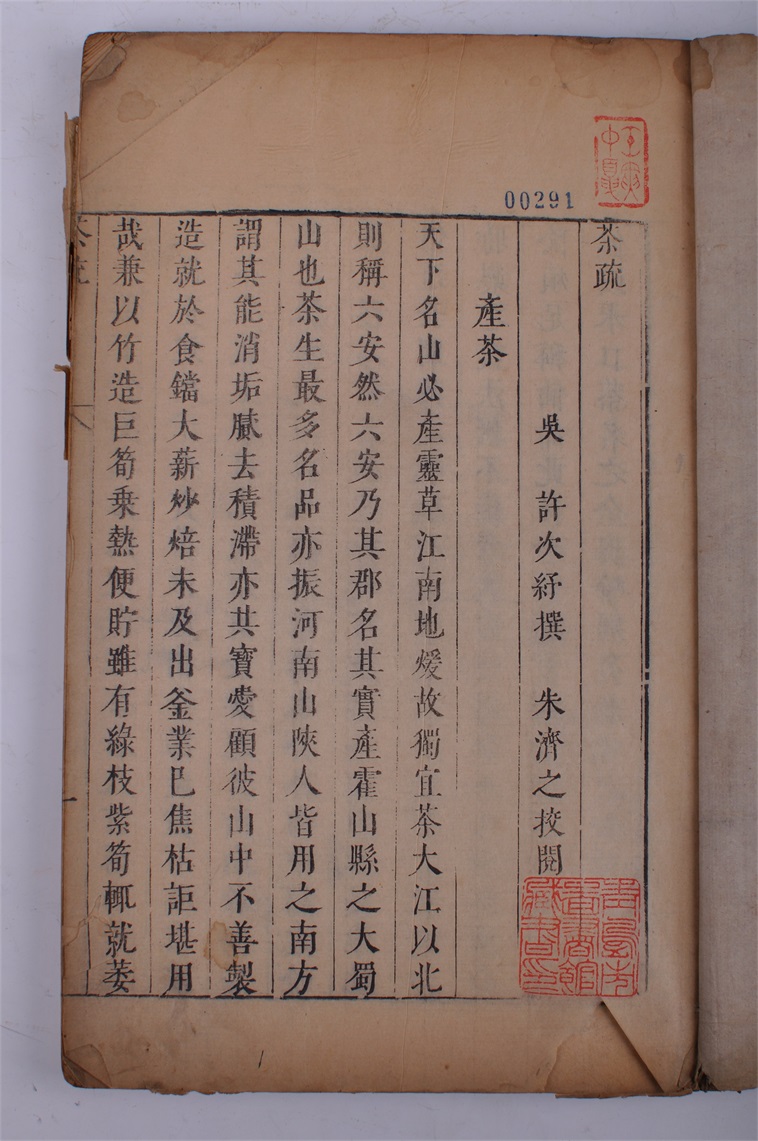 茶疏
吳 許次紓撰 朱濟之挍閱
產茶
天下名山必產靈草江南地煖故獨宜茶大江以北
則稱六安然六安乃其郡名其實產霍山縣之大蜀
山也茶生最多名品亦振河南山陝人皆用之南方
謂其能消垢膩去積滯亦共寶愛顧彼山中不善製
造就於食鐺大薪炒焙未及出釜業已焦枯詎堪用
哉兼以竹造巨笱乗熱便貯雖有綠枝紫筍輒就萎
茶疏
一
00291